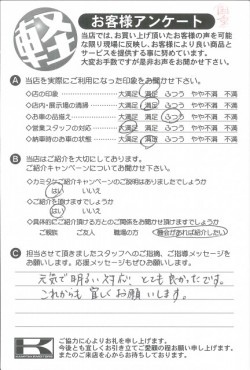 軽
お客様アンケート
当店では、お買い上げ頂いたお客様の声を可能
な限り現場に反映し、お客様により良い商品と
サービスを提供する事に努めています。
大変お手数ですが是非お声をお聞かせ下さい。
A 当店を実際にご利用になった印象をお聞かせ下さい。
◇店の印象 大満足 満足 ふつう やや不満 不満
◇店内・展示場の清掃 大満足 満足 ふつう やや不満 不満
◇お車の品揃え 大満足 満足 ふつう やや不満 不満
◇営業スタッフの対応 大満足 満足 ふつう やや不満 不満
◇納車時のお車の状態 大満足 満足 ふつう やや不満 不満
B 当店はご紹介を大切にしております。
ご紹介キャンペーンについてお聞かせ下さい。
◇カミタケご紹介キャンペーンのご説明はありましたでしょうか
はい いいえ
◇ご紹介を頂けますでしょうか
はい いいえ
◇具体的にご紹介頂ける方とのご関係をお聞かせ頂けますでしょうか
ご親族 ご友人 職場の方 機会があれば紹介したい
C 担当させて頂きましたスタッフへのご指摘、ご指導メッセージを
お願いします。応援メッセージもぜひお願いします。
元気で明るい対応 とても良かったです。
これからも宜しくお願いします。
K
ご協力に心よりお礼を申し上げます。
今後とも宜しくお引き立てご愛顧の程お願い申し上げます。
またのご来店を心からお待ちしております。